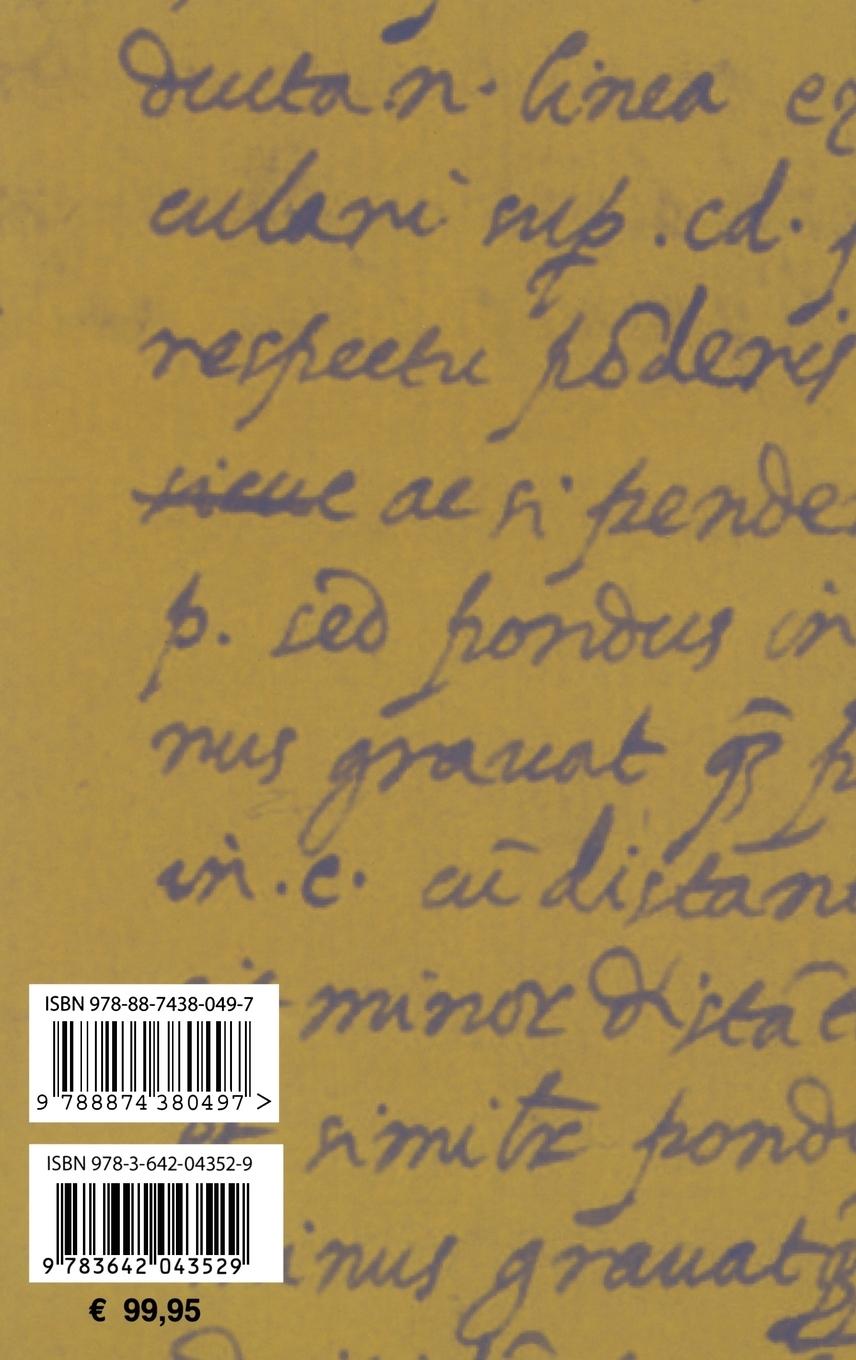 ducta .n. linea
culari sup .cd.
respectu põderis
sicut ac si pende
p. sed pondus in
nus grauat
in .c. cū distan
minor distã
pond
inus grauat
ISBN 978-88-7438-049-7
9 788874 380497 >
ISBN 978-3-642-04352-9
9 783642 043529
€ 99,95